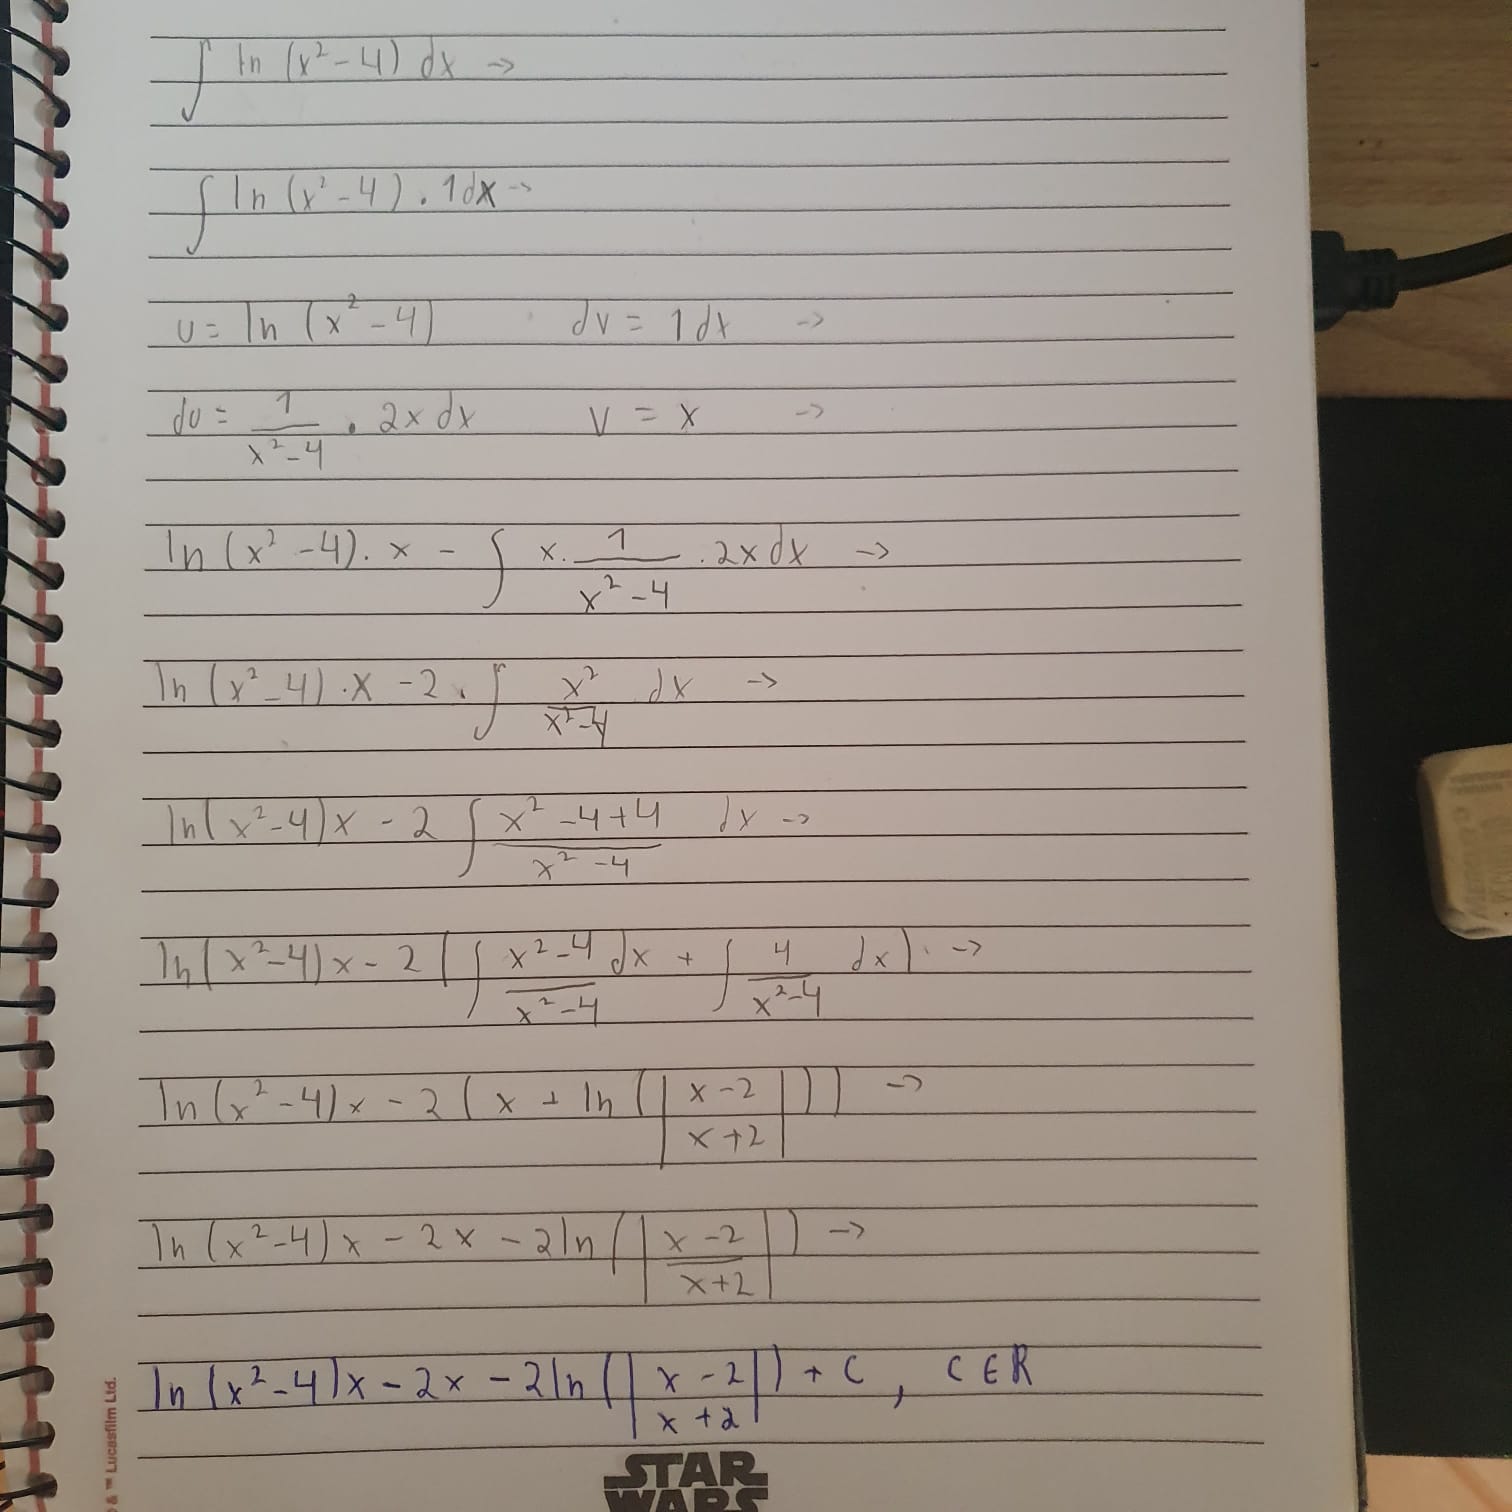 ∫ ln (x² - 4) dx →
∫ ln (x² - 4) . 1dx →
u = ln (x² - 4) dv = 1 dx →
du = 1/(x² - 4) . 2x dx v = x →
ln (x² - 4) . x - ∫ x . 1/(x² - 4) . 2x dx →
ln (x² - 4) . x - 2 . ∫ x²/(x² - 4) dx →
ln (x² - 4) x - 2 ∫ (x² - 4 + 4)/(x² - 4) dx →
ln (x² - 4) x - 2 ( ∫ (x² - 4)/(x² - 4) dx + ∫ 4/(x² - 4) dx ) . →
ln (x² - 4) x - 2 ( x + ln ( | (x - 2)/(x + 2) | ) ) →
ln (x² - 4) x - 2x - 2 ln ( | (x - 2)/(x + 2) | ) →
ln (x² - 4) x - 2x - 2 ln ( | (x - 2)/(x + 2) | ) + C , C ∈ R
& ™ Lucasfilm Ltd.
STAR
WARS